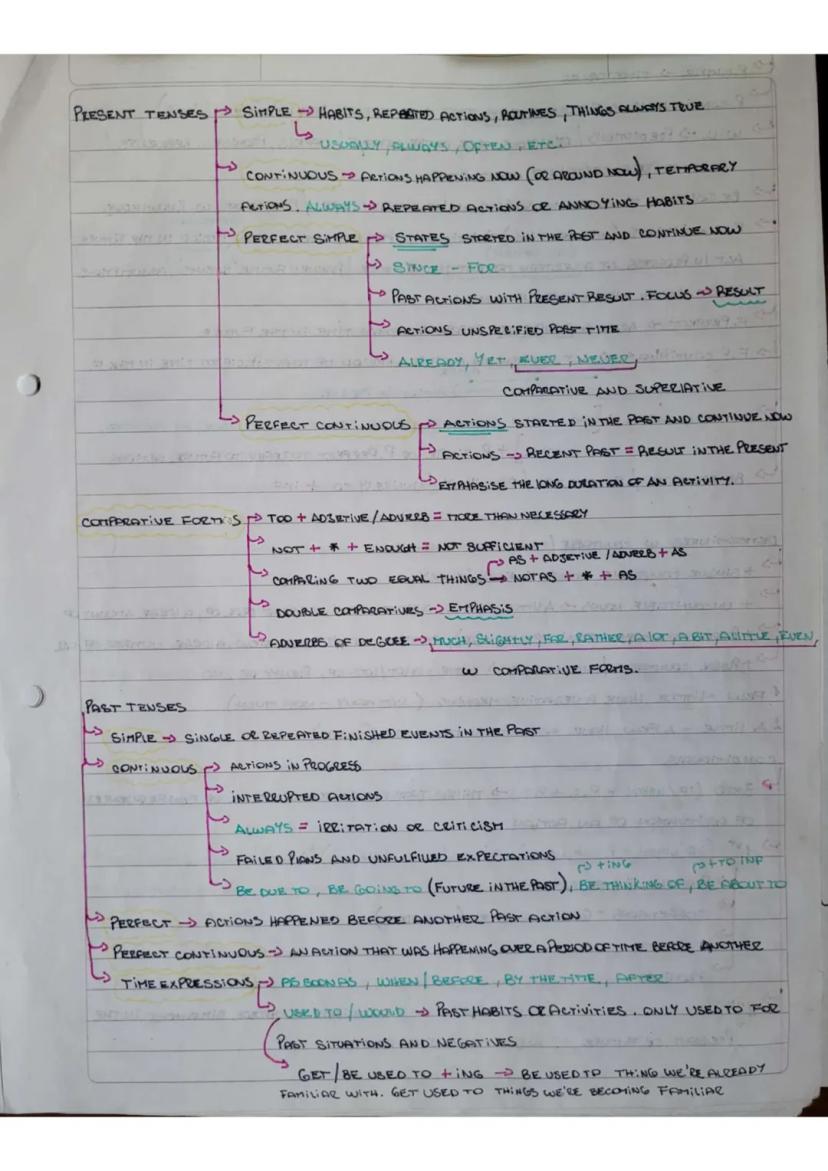 PRESENT TENSES → SIMPLE → HABITS, REPEATED ACTIONS, ROUTINES, THINGS ALWAYS TRUE
USUALLY, ALWAYS, OFTEN, ETC.
CONTINUOUS → ACTIONS HAPPENING NOW (OR AROUND NOW), TEMPORARY
ACTIONS. ALWAYS → REPEATED ACTIONS OR ANNOYING HABITS
PERFECT SIMPLE → STATES STARTED IN THE PAST AND CONTINUE NOW
SINCE - FOR
PAST ACTIONS WITH PRESENT RESULT. FOCUS → RESULT
ACTIONS UNSPECIFIED PAST TIME
ALREADY, YET, EVER, NEVER
COMPARATIVE AND SUPERLATIVE
PERFECT CONTINUOUS → ACTIONS STARTED IN THE PAST AND CONTINUE NOW
ACTIONS → RECENT PAST = RESULT IN THE PRESENT
EMPHASISE THE LONG DURATION OF AN ACTIVITY.
COMPARATIVE FORMS → TOO + ADJETIVE / ADVERB = MORE THAN NECESSARY
NOT + * + ENOUGH = NOT SUFFICIENT
AS + ADJETIVE / ADVERB + AS
COMPARING TWO EQUAL THINGS → NOT AS + * + AS
DOUBLE COMPARATIVES → EMPHASIS
ADVERBS OF DEGREE → MUCH, SLIGHTLY, FAR, RATHER, A LOT, A BIT, A LITTLE, EVEN,
W COMPARATIVE FORMS.
PAST TENSES
SIMPLE → SINGLE OR REPEATED FINISHED EVENTS IN THE PAST
CONTINUOUS → ACTIONS IN PROGRESS
INTERRUPTED ACTIONS
ALWAYS = IRRITATION OR CRITICISM
FAILED PLANS AND UNFULFILLED EXPECTATIONS
→ +ING → + TO INF
BE DUE TO, BE GOING TO (FUTURE IN THE PAST), BE THINKING OF, BE ABOUT TO
PERFECT → ACTIONS HAPPENED BEFORE ANOTHER PAST ACTION
PERFECT CONTINUOUS → AN ACTION THAT WAS HAPPENING OVER A PERIOD OF TIME BEFORE ANOTHER
TIME EXPRESSIONS → AS SOON AS, WHEN / BEFORE, BY THE TIME, AFTER
USED TO / WOULD → PAST HABITS OR ACTIVITIES. ONLY USED TO FOR
PAST SITUATIONS AND NEGATIVES
GET / BE USED TO + ING → BE USED TO THING WE'RE ALREADY
FAMILIAR WITH. GET USED TO THINGS WE'RE BECOMING FAMILIAR